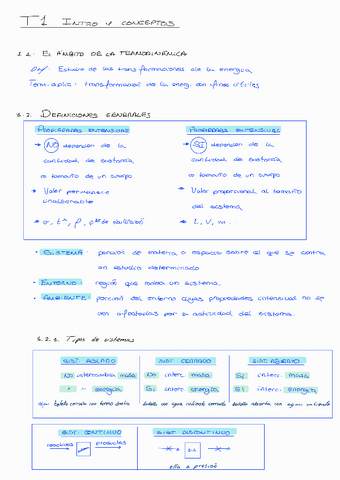 T1 INTRO Y CONCEPTOS
1.1. EL ÁMBITO DE LA TERMODINÁMICA
Def: Estudio de las transformaciones de la energía
Term. aplic: transformación de la energ. con fines útiles
1.2. DEFINICIONES GENERALES
PROPIEDADES INTENSIVAS
→ NO dependen de la
cantidad de sustancia
o tamaño de un cuerpo
→ Valor permanece
inalterable
→ v, tª, ρ, pto de ebullición
PROPIEDADES EXTENSIVAS
→ SÍ dependen de la
cantidad de sustancia
o tamaño de un cuerpo
→ Valor proporcional al tamaño
del sistema
→ L, V, m.
• SISTEMA: porción de materia o espacio sobre el que se centra
un estudio determinado
• ENTORNO: región que rodea un sistema.
• AMBIENTE: porción del entorno cuyas propiedades intensivas no se
ven afectadas por la actividad del sistema.
1.2.1. Tipos de sistemas
SIST AISLADO
No intercambia masa
" " energía
SIST CERRADO
No interc. masa
Sí interc. energía
botella con agua caliente cerrada
SIST. ABIERTO
Sí interc. masa
Sí interc. energía
botella abierta con agua caliente
SIST CONTINUO
reactivos → productos
SIST DISCONTINUO
olla a presión